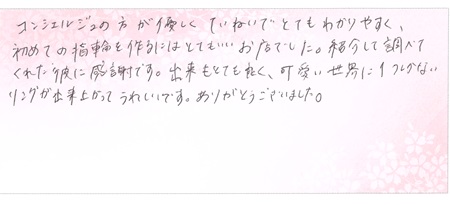 コンシェルジュの方が優しく ていねいで とてもわかりやすく、
初めての指輪を作るにはとてもいいお店でした。紹介して調べて
くれた彼に感謝です。出来もとても良く、可愛い世界に1つしかない
リングが出来上がって うれしいです。ありがとうございました。